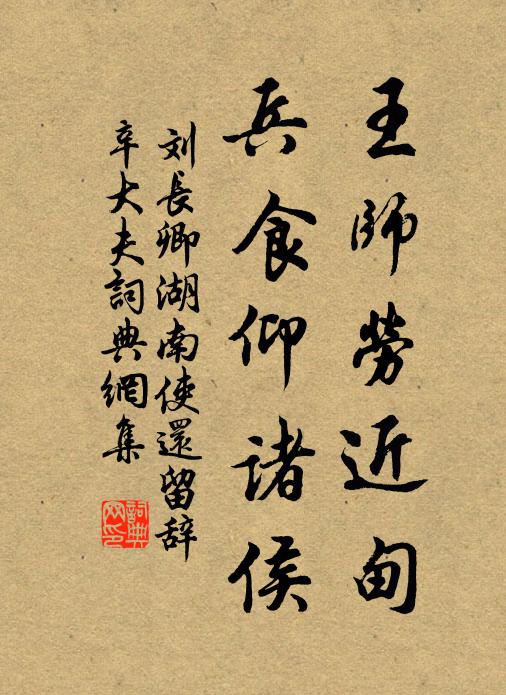 王師勞近甸
兵食仰諸侯
刘長卿湖南使還留辞
辛大夫詞典網集
詞典網印